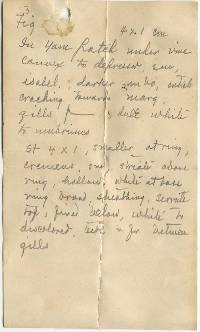 3
Fig 4 x 1 cm
In yam Patch under vine
convex to depressed, 
isabel; darker umbo, 
cracking towards marg.
gills dull white
to umbrinus
St 4 x 1, smaller at ring,
cremeus, striate above
ring, hollow, white at base
ring broad sheathing, serrate
top, free below, white to
discolored, between
gills